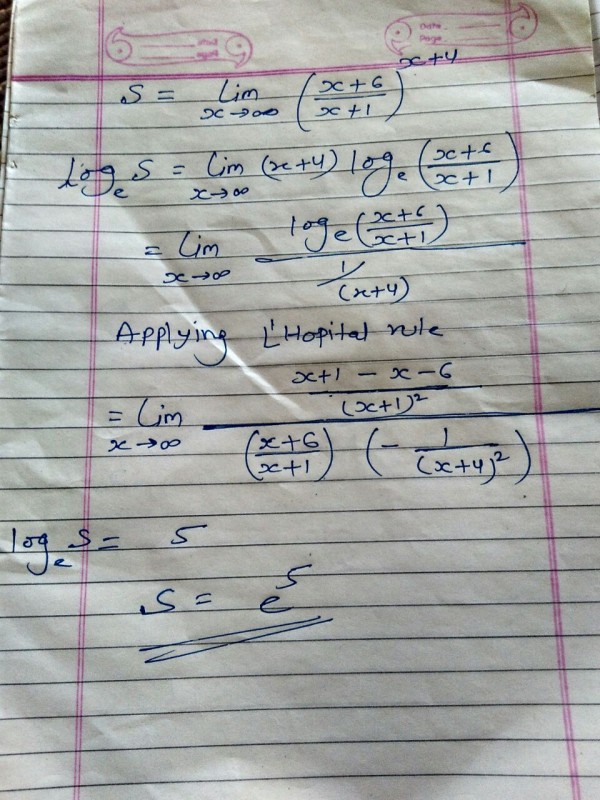 Date
Page
S = lim x→∞ (x+6/x+1)^x+4
log_e S = lim x→∞ (x+4) log_e (x+6/x+1)
= lim x→∞ log_e (x+6/x+1) / 1/(x+4)
Applying L'Hopital rule
= lim x→∞ x+1-x-6/(x+1)² / (x+6/x+1) (-1/(x+4)²)
log_e S = 5
S = e^5